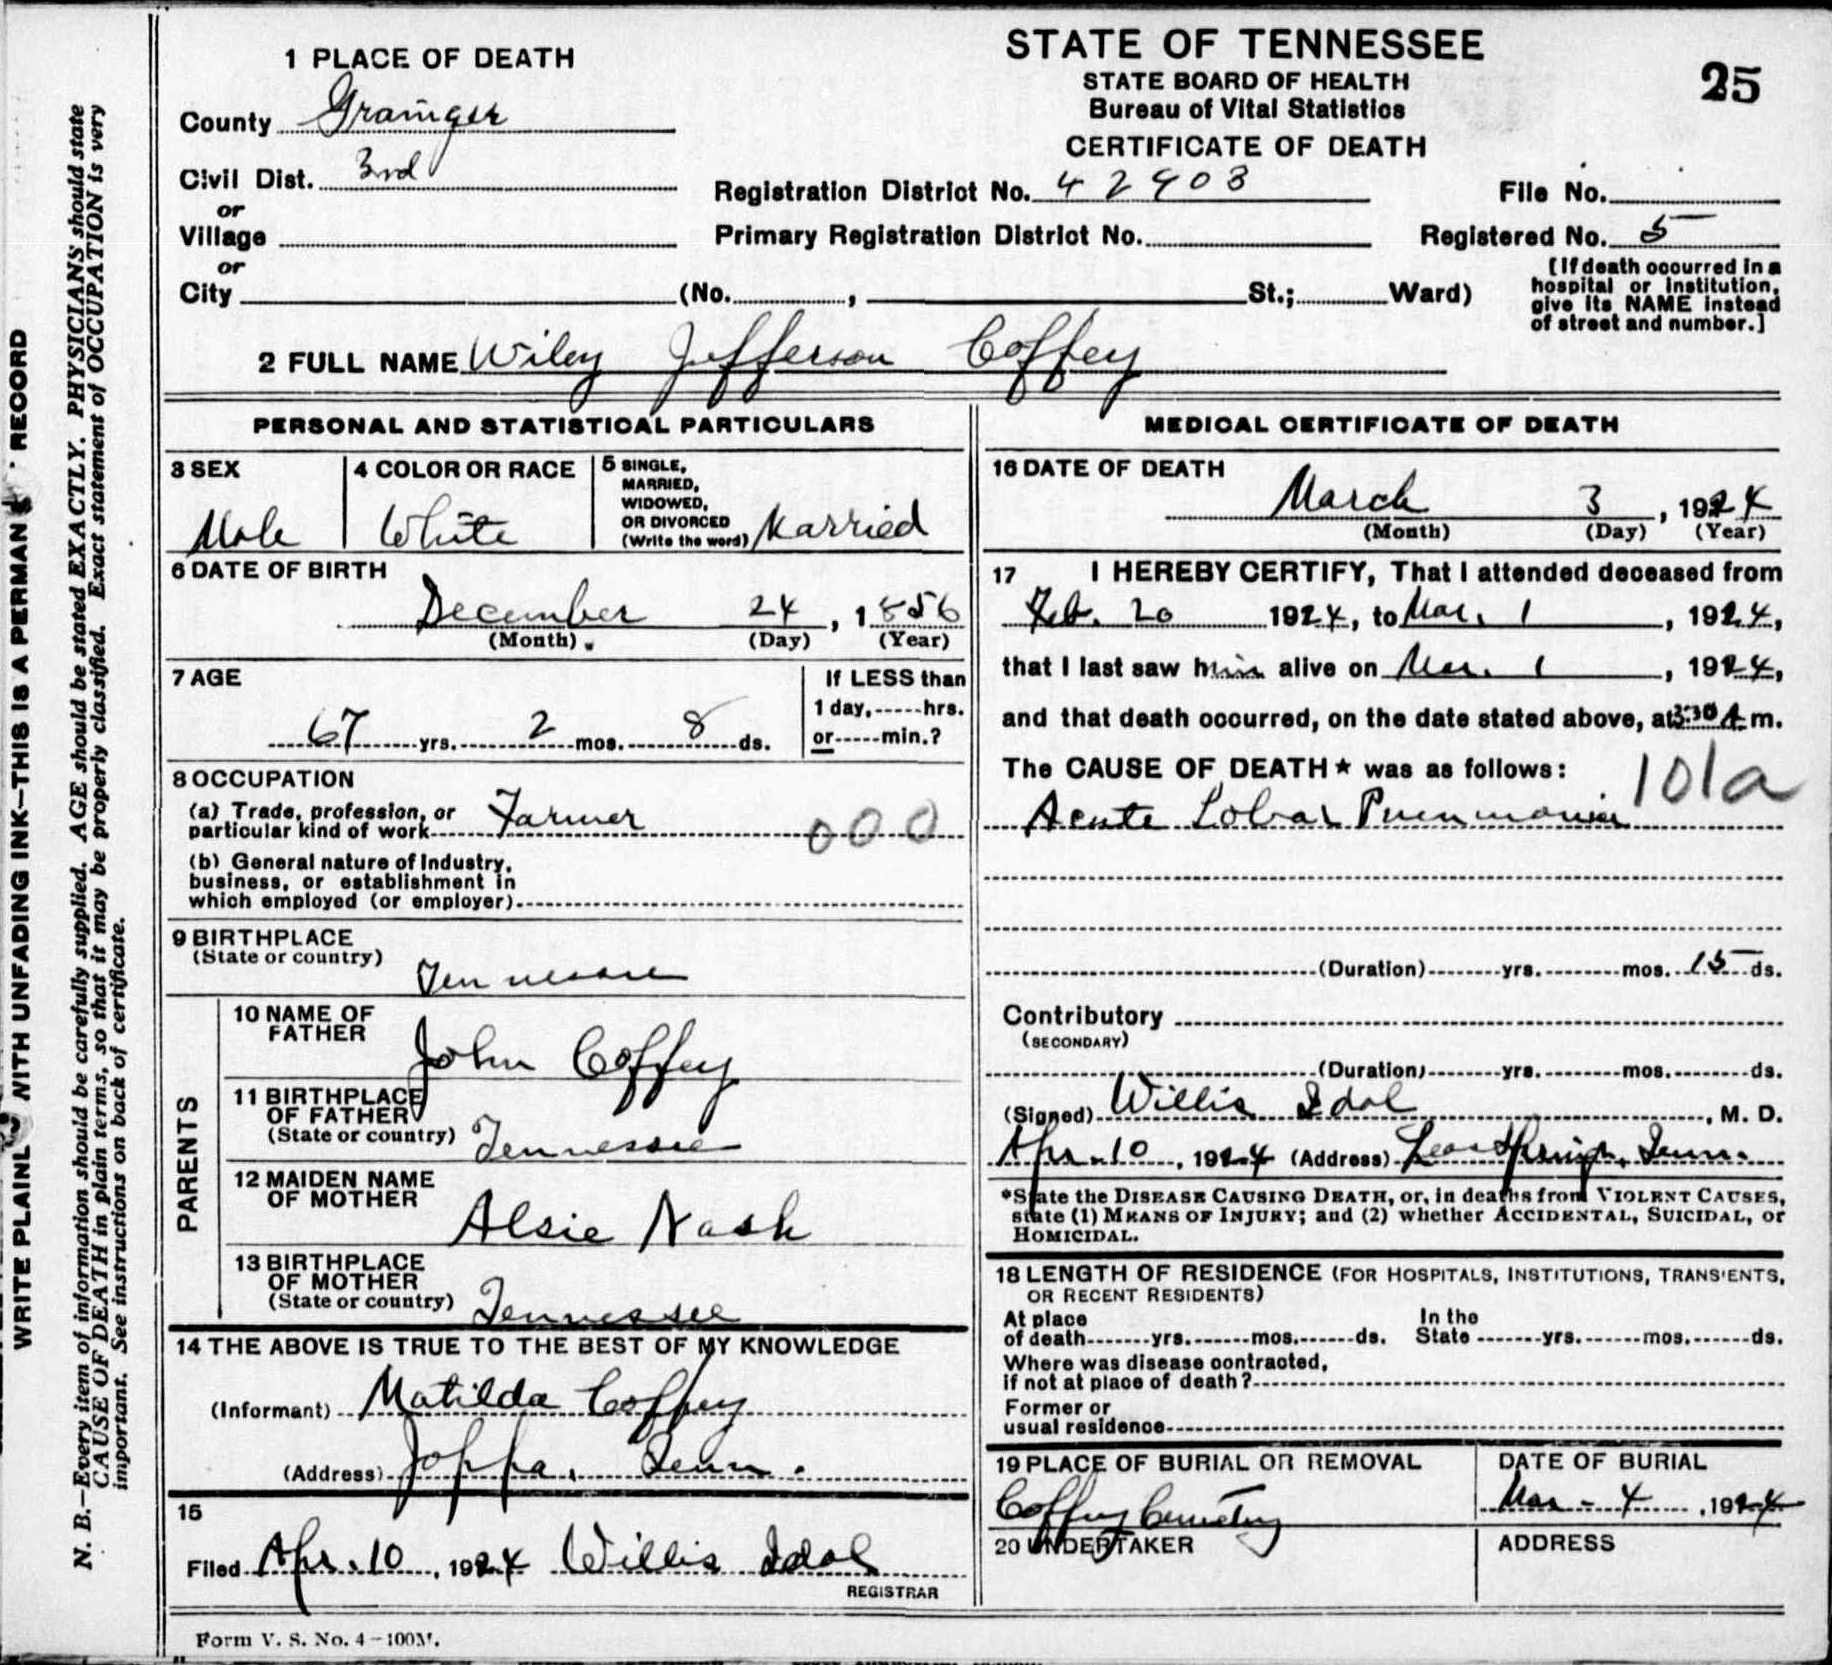 STATE OF TENNESSEE
STATE BOARD OF HEALTH
Bureau of Vital Statistics
CERTIFICATE OF DEATH
25
1 PLACE OF DEATH
County Grainger
Civil Dist. 3rd
or
Village
or
City (No. , St.; Ward)
Registration District No. 42903
Primary Registration District No.
File No.
Registered No. 5
[If death occurred in a
hospital or institution,
give its NAME instead
of street and number.]
2 FULL NAME Wiley Jefferson Coffey
PERSONAL AND STATISTICAL PARTICULARS
3 SEX
Male
4 COLOR OR RACE
White
5 SINGLE,
MARRIED,
WIDOWED,
OR DIVORCED
(Write the word) Married
6 DATE OF BIRTH
December 24, 1856
(Month) (Day) (Year)
7 AGE
67 yrs. 2 mos. 8 ds.
If LESS than
1 day, hrs.
or min.?
8 OCCUPATION
(a) Trade, profession, or
particular kind of work Farmer 000
(b) General nature of Industry,
business, or establishment in
which employed (or employer)
9 BIRTHPLACE
(State or country) Tennessee
PARENTS
10 NAME OF
FATHER John Coffey
11 BIRTHPLACE
OF FATHER
(State or country) Tennessee
12 MAIDEN NAME
OF MOTHER Alsie Nash
13 BIRTHPLACE
OF MOTHER
(State or country) Tennessee
14 THE ABOVE IS TRUE TO THE BEST OF MY KNOWLEDGE
(Informant) Matilda Coffey
(Address) Joppa, Tenn.
15
Filed Apr. 10, 1924 Willis Idol
REGISTRAR
Form V. S. No. 4-100M.
MEDICAL CERTIFICATE OF DEATH
16 DATE OF DEATH
March 3, 1924
(Month) (Day) (Year)
17 I HEREBY CERTIFY, That I attended deceased from
Feb. 20 1924, to Mar. 1, 1924,
that I last saw him alive on Mar. 1, 1924,
and that death occurred, on the date stated above, at 3:30 A m.
The CAUSE OF DEATH* was as follows:
101a
Acute Lobar Pneumonia
(Duration) yrs. mos. 15 ds.
Contributory
(SECONDARY)
(Duration) yrs. mos. ds.
(Signed) Willis Idol, M. D.
Apr. 10, 1924 (Address) Tenn.
*State the DISEASE CAUSING DEATH, or, in deaths from VIOLENT CAUSES,
state (1) MEANS OF INJURY; and (2) whether ACCIDENTAL, SUICIDAL, or
HOMICIDAL.
18 LENGTH OF RESIDENCE (FOR HOSPITALS, INSTITUTIONS, TRANSIENTS,
OR RECENT RESIDENTS)
At place
of death yrs. mos. ds.
In the
State yrs. mos. ds.
Where was disease contracted,
if not at place of death?
Former or
usual residence
19 PLACE OF BURIAL OR REMOVAL
Coffey Cemetery
DATE OF BURIAL
Mar. 4, 1924
20 UNDERTAKER
ADDRESS
WRITE PLAINL WITH UNFADING INK—THIS IS A PERMAN RECORD
N. B.—Every item of information should be carefully supplied. AGE should be stated EXACTLY. PHYSICIANS should state
CAUSE OF DEATH in plain terms, so that it may be properly classified. Exact statement of OCCUPATION is very
important. See instructions on back of certificate.